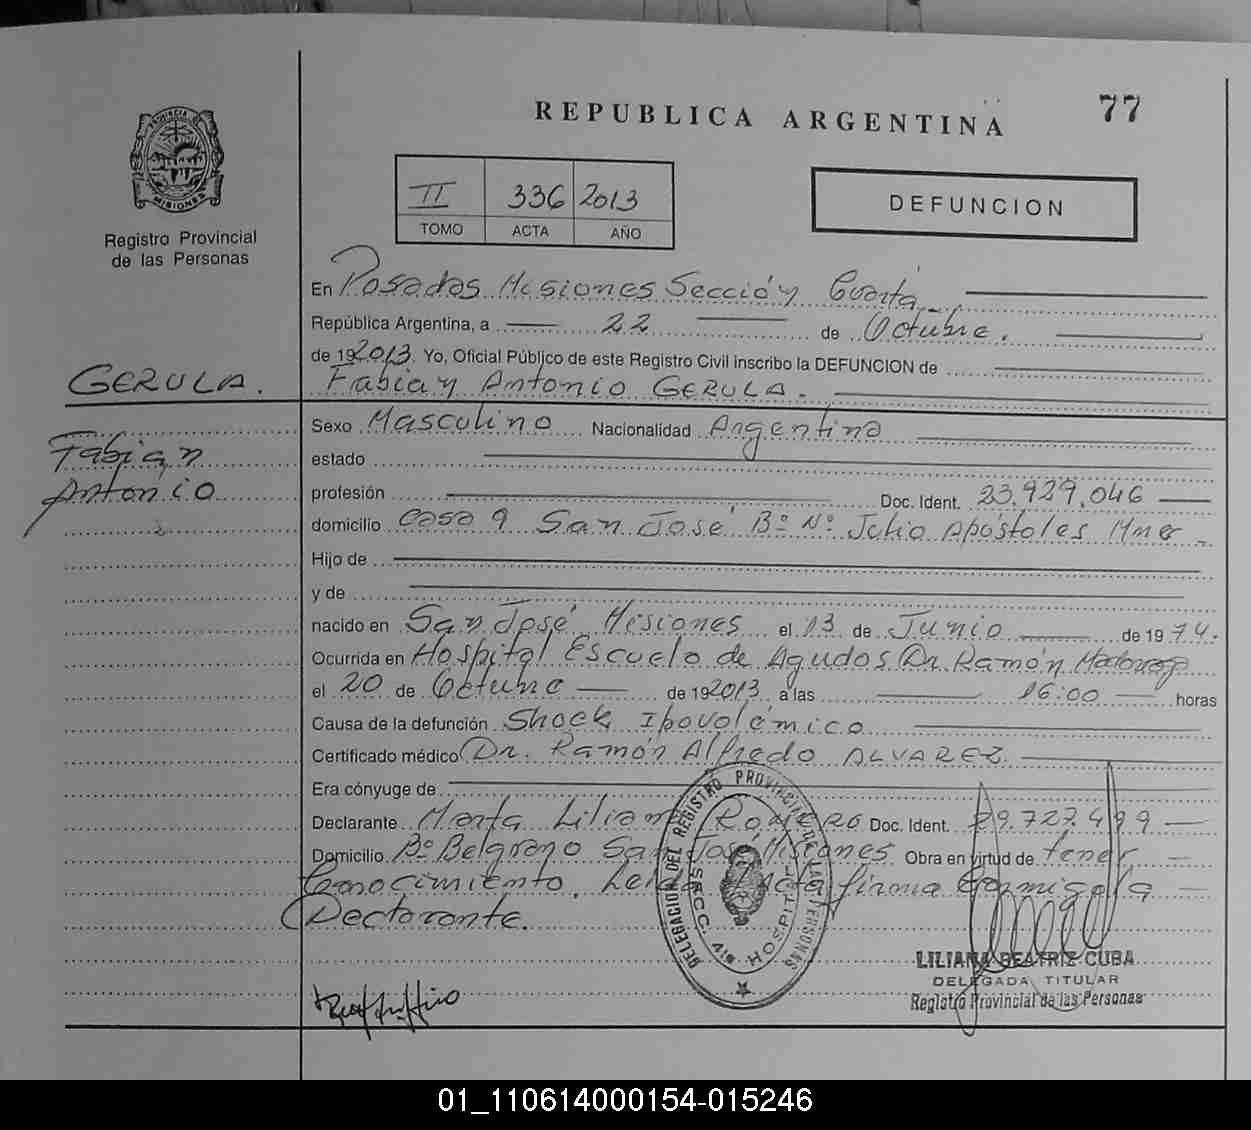 REPUBLICA ARGENTINA
77
PROVINCIA DE MISIONES
Registro Provincial
de las Personas
II 336 2013
TOMO ACTA AÑO
DEFUNCION
En Posadas Misiones Sección Cuarta
República Argentina, a 22 de Octubre.
de 192013. Yo, Oficial Público de este Registro Civil inscribo la DEFUNCION de
Fabian Antonio GERULA.
GERULA.
Fabian
Antonio
Sexo Masculino Nacionalidad Argentina
estado
profesión Doc. Ident. 23.929.046
domicilio Casa 9 San José Bº Nº Julio Apóstoles Mnes
Hijo de
y de
nacido en San José Misiones el 13 de Junio de 1974.
Ocurrida en Hospital Escuela de Agudos Dr Ramón Madariaga
el 20 de Octubre de 192013 a las 16:00 horas
Causa de la defunción Shock Ipovolémico
Certificado médico Dr. Ramón Alfredo ALVAREZ
Era cónyuge de
Declarante Marta Liliana ROMERO Doc. Ident. 29.723.499
Domicilio Bº Belgrano San José Misiones Obra en virtud de tener
Conocimiento. Leída Acta firma Conmigo la
Declarante.
DELEGACION DEL REGISTRO PROVINCIAL DE LAS PERSONAS
SECC. 4ta HOSPITAL
LILIANA BEATRIZ CUBA
DELEGADA TITULAR
Registro Provincial de las Personas
01_110614000154-015246